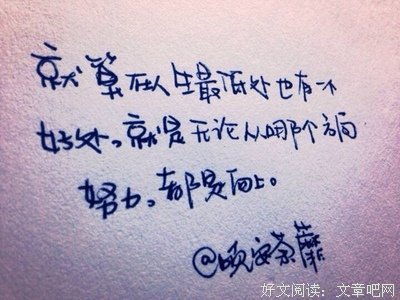 就算在人生最低处也有一个
好处。就是无论从哪个方向
努力。都是向上。
@晚安荼蘼
好文阅读：文章吧网